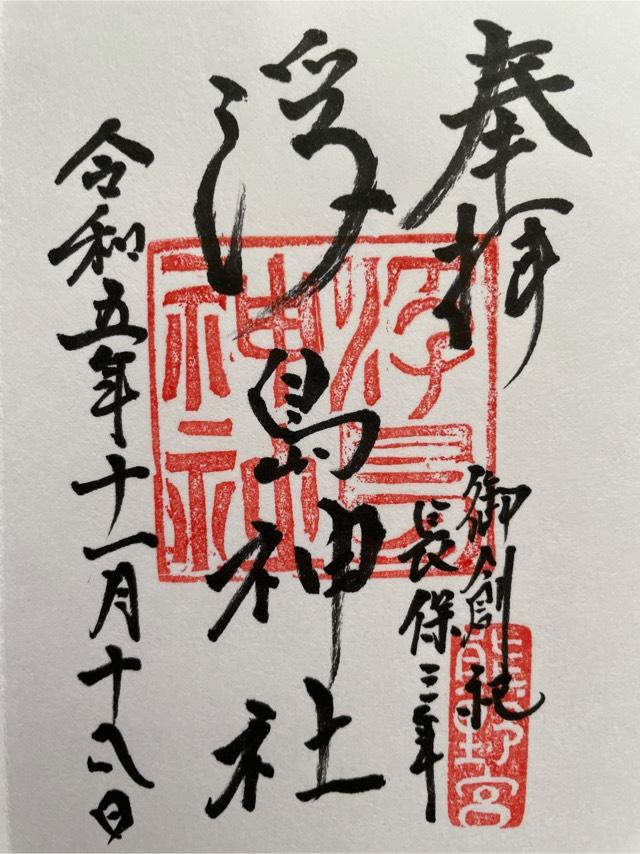 奉拝
御創祀
長保三年
浮島神社
令和五年十一月十八日
浮島神社
熊野宮